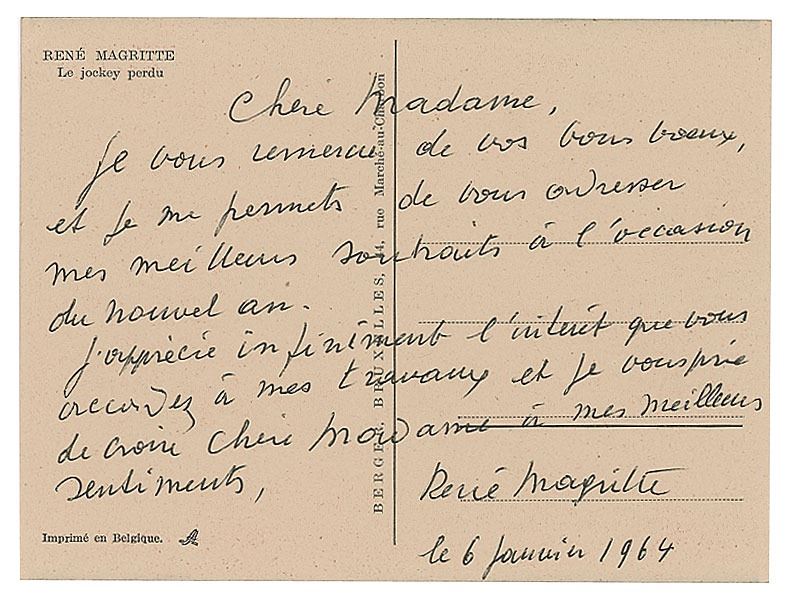 RENÉ MAGRITTE
Le jockey perdu
Chère Madame,
Je vous remercie de vos bons voeux,
et je me permets de vous adresser
mes meilleurs souhaits à l'occasion
du nouvel an.
J'apprécie infiniment l'intérêt que vous
accordez à mes travaux et je vous prie
de croire Chère Madame à mes meilleurs
sentiments,
René Magritte
le 6 Janvier 1964
Imprimé en Belgique.
BERGER, BRUXELLES, 44, rue Marché-au-Charbon